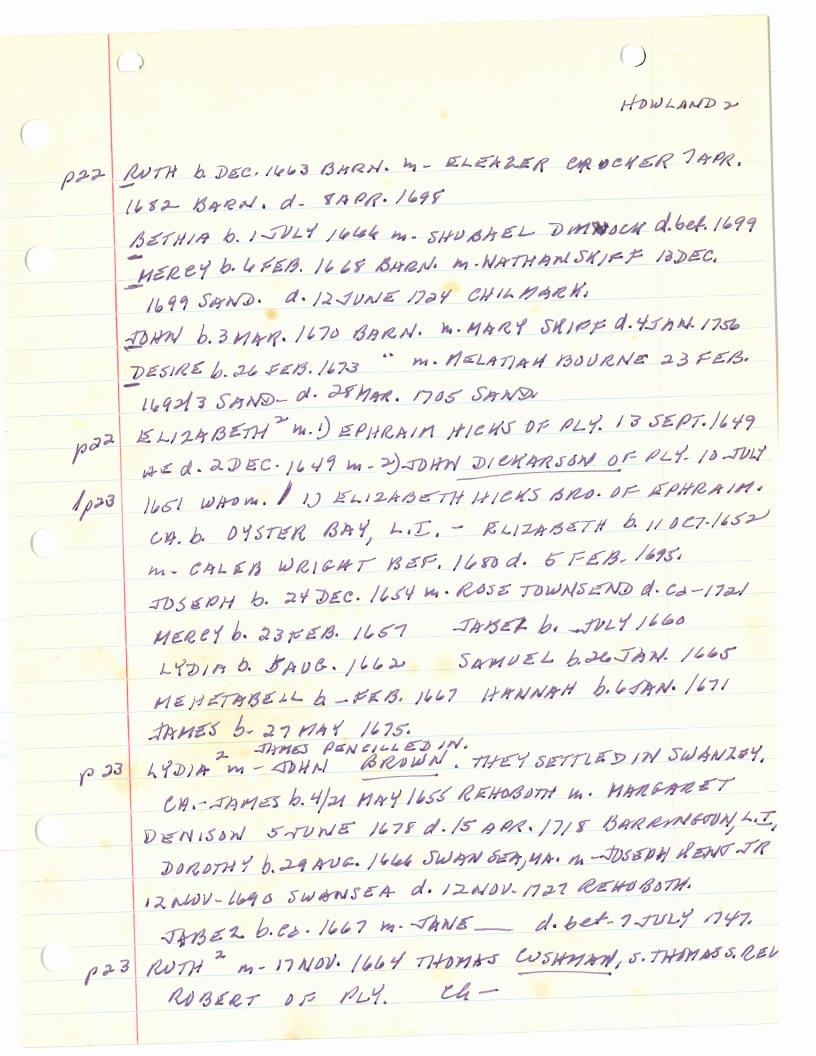 HOWLAND 2
p22 RUTH b. DEC. 1663 BARN. m- ELEAZER CROCKER 7 APR.
1682 BARN. d- 8 APR. 1698
BETHIA b. 1 JULY 1666 m- SHUBAEL DIMMOCK d. bef. 1699
MERCY b. 6 FEB. 1668 BARN. m. NATHAN SKIFF 12 DEC.
1699 SAND. d. 12 JUNE 1724 CHILMARK.
JOHN b. 3 MAR. 1670 BARN. m. MARY SKIFF d. 4 JAN. 1756
DESIRE b. 26 FEB. 1673 " m. MELATIAH BOURNE 23 FEB.
1692/3 SAND- d. 28 MAR. 1705 SAND.
p22 ELIZABETH 2 m. 1) EPHRAIM HICKS OF PLY. 13 SEPT. 1649
HE d. 2 DEC. 1649 m- 2) JOHN DICKARSON OF PLY- 10 JULY
p23 1651 WHO m. 1) ELIZABETH HICKS BRO. OF EPHRAIM.
CH. b. OYSTER BAY, L.I. - ELIZABETH b. 11 OCT. 1652
m- CALEB WRIGHT BEF. 1680 d. 5 FEB. 1695.
JOSEPH b. 24 DEC. 1654 m. ROSE TOWNSEND d. ca- 1721
MERCY b. 23 FEB. 1657 JABEZ b. - JULY 1660
LYDIA b. 5 AUG. 1662 SAMUEL b. 26 JAN. 1665
MEHETABELL b - FEB. 1667 HANNAH b. 6 JAN. 1671
JAMES b- 27 MAY 1675.
JAMES PENCILLED IN.
p23 LYDIA 2 m- JOHN BROWN. THEY SETTLED IN SWANZEY.
CH.- JAMES b. 4/21 MAY 1655 REHOBOTH m. MARGARET
DENISON 5 JUNE 1678 d. 15 APR. 1718 BARRINGTON, L.I,
DOROTHY b. 29 AUG. 1666 SWANSEA, MA. m- JOSEPH KENT JR
12 NOV- 1690 SWANSEA d. 12 NOV- 1727 REHOBOTH.
JABEZ b. ca. 1667 m- JANE ___ d. bef- 7 JULY 1747.
p23 RUTH 2 m- 17 NOV. 1664 THOMAS CUSHMAN, S. THOMAS S. REV
ROBERT OF PLY. Ch-